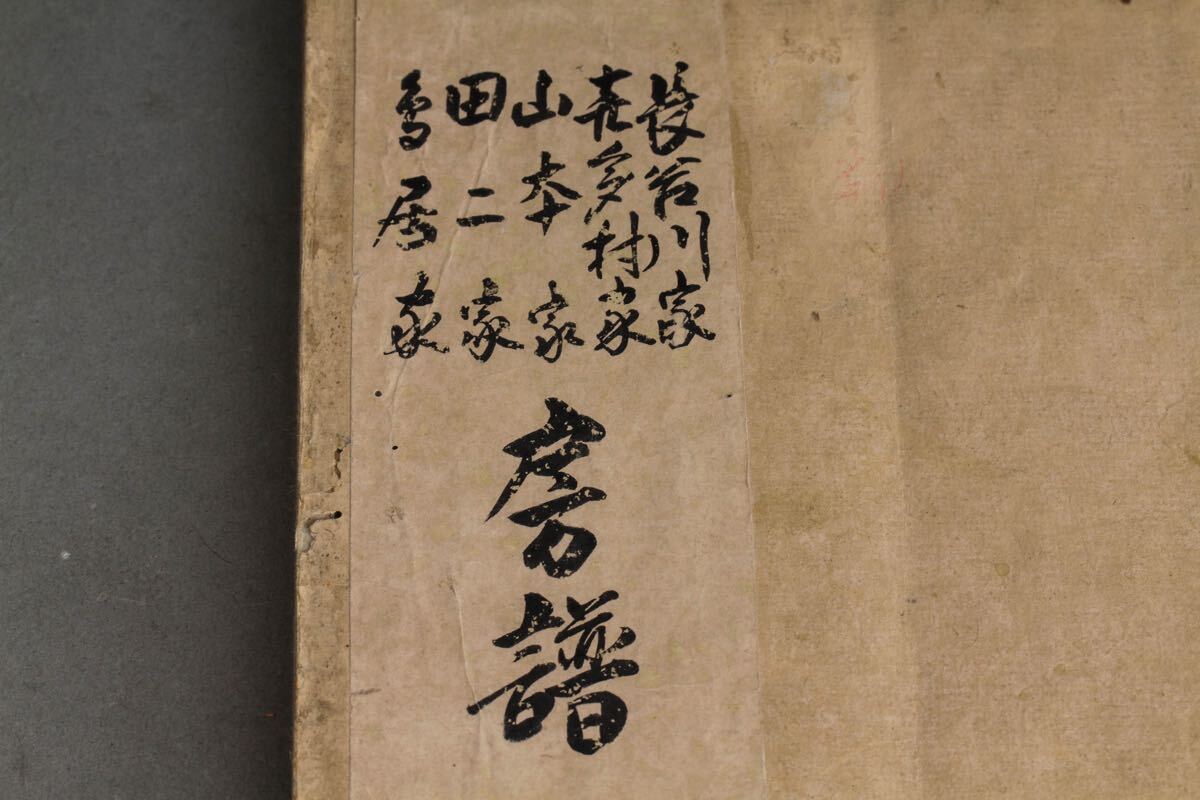 長谷川家
喜多村家
山本家
田二家
鳥居家
房譜